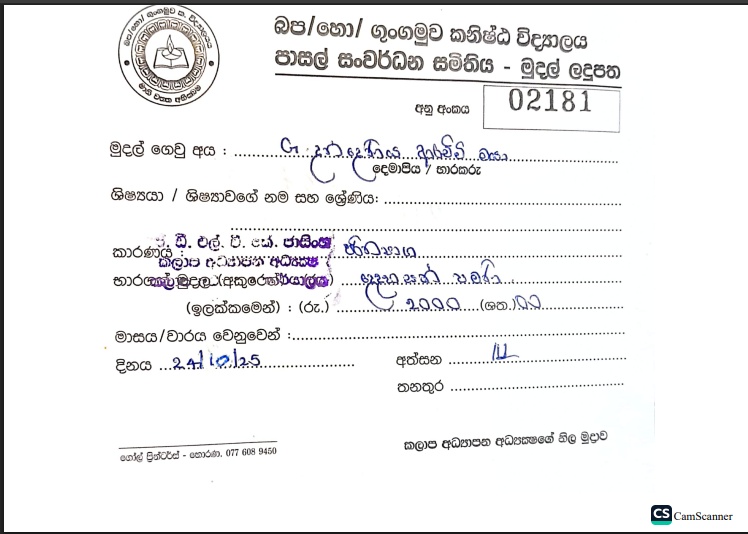 බප/හො/ ගුංගමුව ක. විද්‍යාලය
බප/හො/ ගුංගමුව කනිෂ්ඨ විද්‍යාලය
පාසල් සංවර්ධන සමිතිය - මුදල් ලදුපත
අනු අංකය 02181
මුදල් ගෙවූ අය :
දෙමාපිය / භාරකරු
ශිෂ්‍යයා / ශිෂ්‍යාවගේ නම සහ ශ්‍රේණිය:
ඩී. එල්. ඒ. කේ. ජාසිංහ
කාරණය :
කලාප අධ්‍යාපන අධ්‍යක්ෂ
මුදල (අකුරෙන්)
(ඉලක්කමෙන්) : (රු.) 2000 (ශත.) 00
මාසය/වාරය වෙනුවෙන් :
දිනය 24/10/25 අත්සන
තනතුර
ගෝල් ප්‍රින්ටර්ස් - හොරණ. 077 608 9450
කලාප අධ්‍යාපන අධ්‍යක්ෂගේ නිල මුද්‍රාව
CS CamScanner